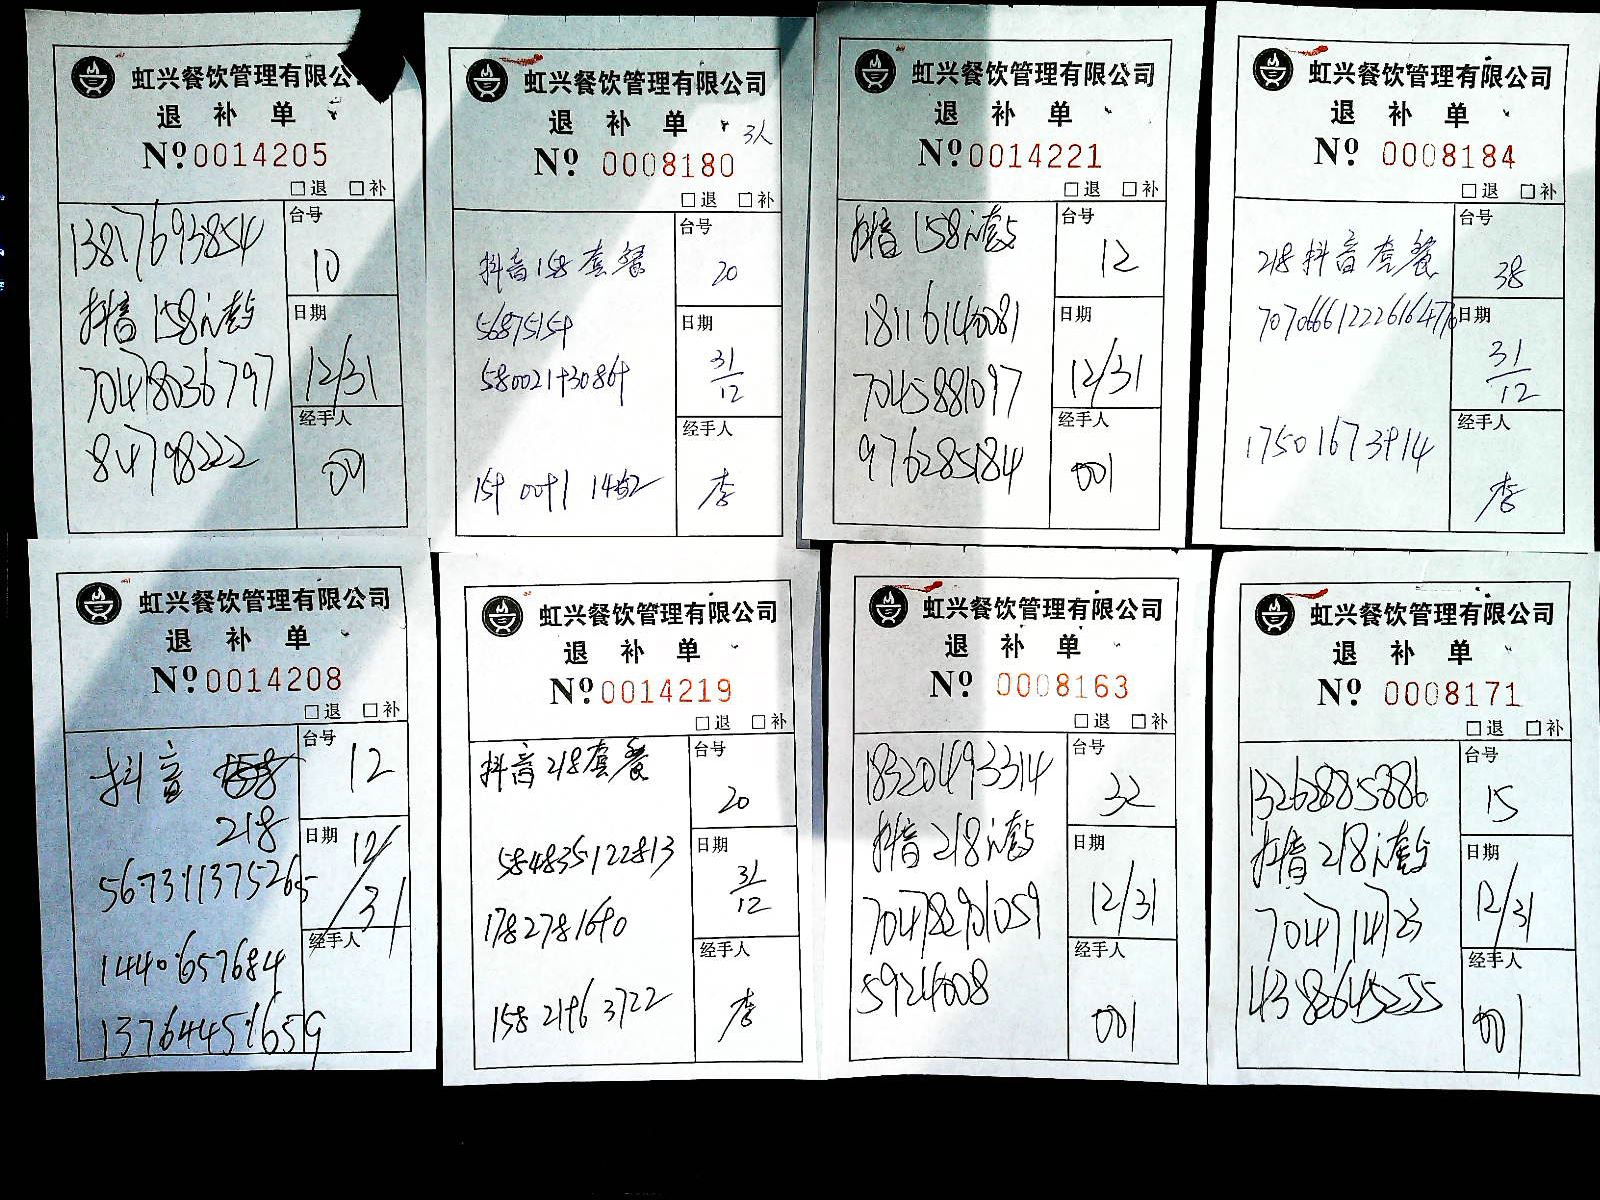 虹兴餐饮管理有限公
退补单
Nº 0014205
□退 □补
13817693854
抖音158元套
70478036797
84798222
台号
10
日期
12/31
经手人
001
虹兴餐饮管理有限公司
退补单
3人
Nº 0008180
□退 □补
抖音158套餐
56875154
台号
20
日期
31/12
经手人
李
虹兴餐饮管理有限公司
退补单
Nº 0014221
□退 □补
抖音158元套
18116140081
7045881097
976285184
台号
12
日期
12/31
经手人
001
虹兴餐饮管理有限公司
退补单
Nº 0008184
□退 □补
218抖音套餐
17501673914
台号
38
日期
31/12
经手人
李
虹兴餐饮管理有限公司
退补单
Nº 0014208
□退 □补
抖音
218
567311375265
1440657684
13764451659
台号
12
日期
12/31
经手人
虹兴餐饮管理有限公司
退补单
Nº 0014219
□退 □补
抖音218套餐
584835122813
1782781690
158 2196 3722
台号
20
日期
31/12
经手人
李
虹兴餐饮管理有限公司
退补单
Nº 0008163
□退 □补
18320493314
抖音218元套
704782901059
5924008
台号
32
日期
12/31
经手人
001
虹兴餐饮管理有限公司
退补单
Nº 0008171
□退 □补
13262885886
抖音218元套
704714723
4382645255
台号
15
日期
12/31
经手人
001